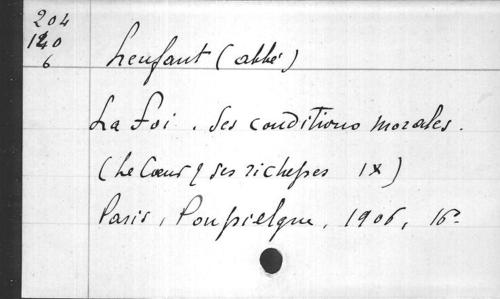 204
120
6
Lenfant (abbé)
La Foi. Ses conditions morales.
(Le Cœur & ses richesses IX)
Paris, Poussielgue, 1906, 16º